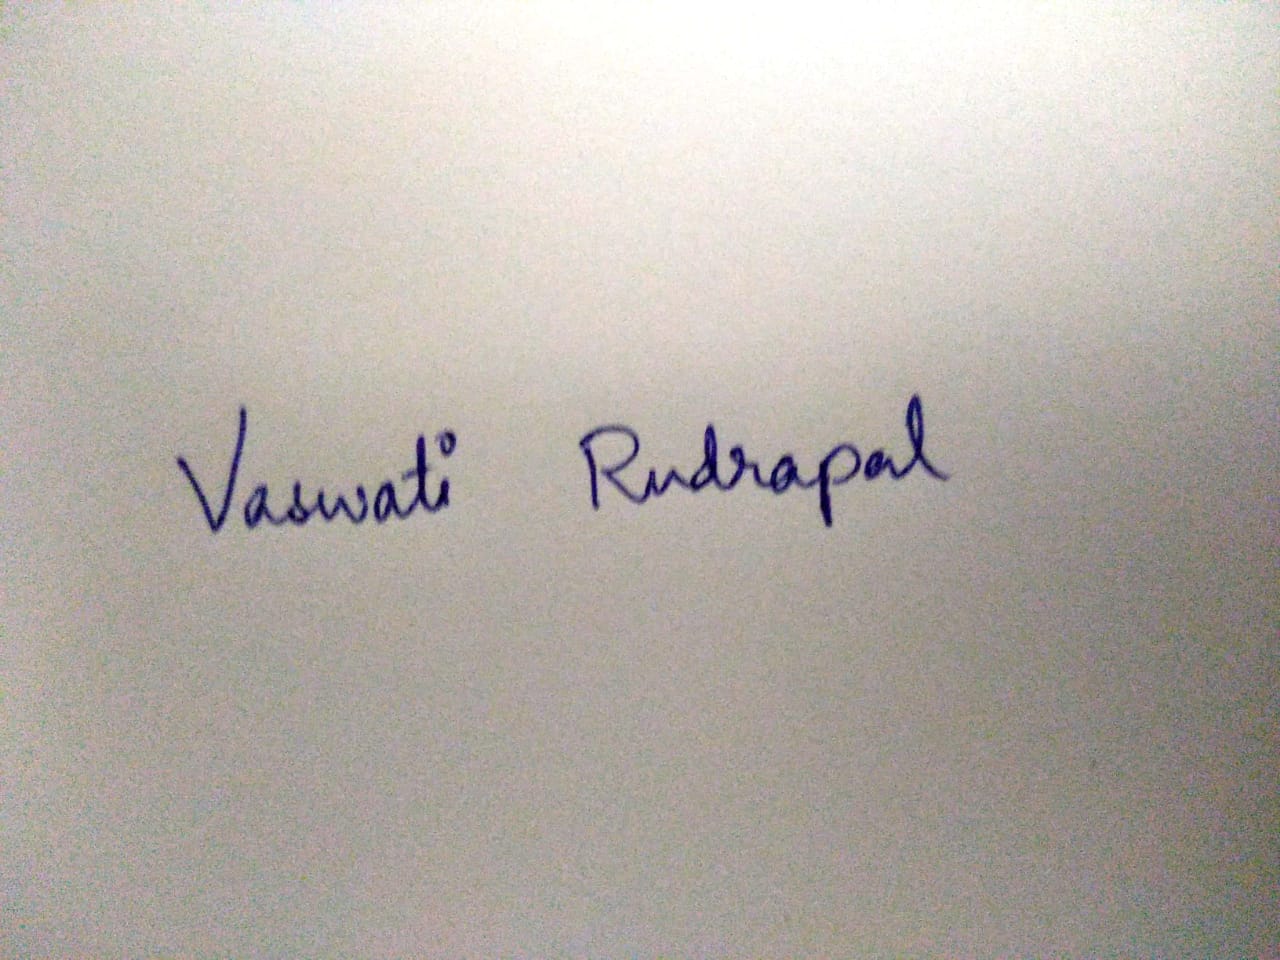 Vaswati Rudrapal